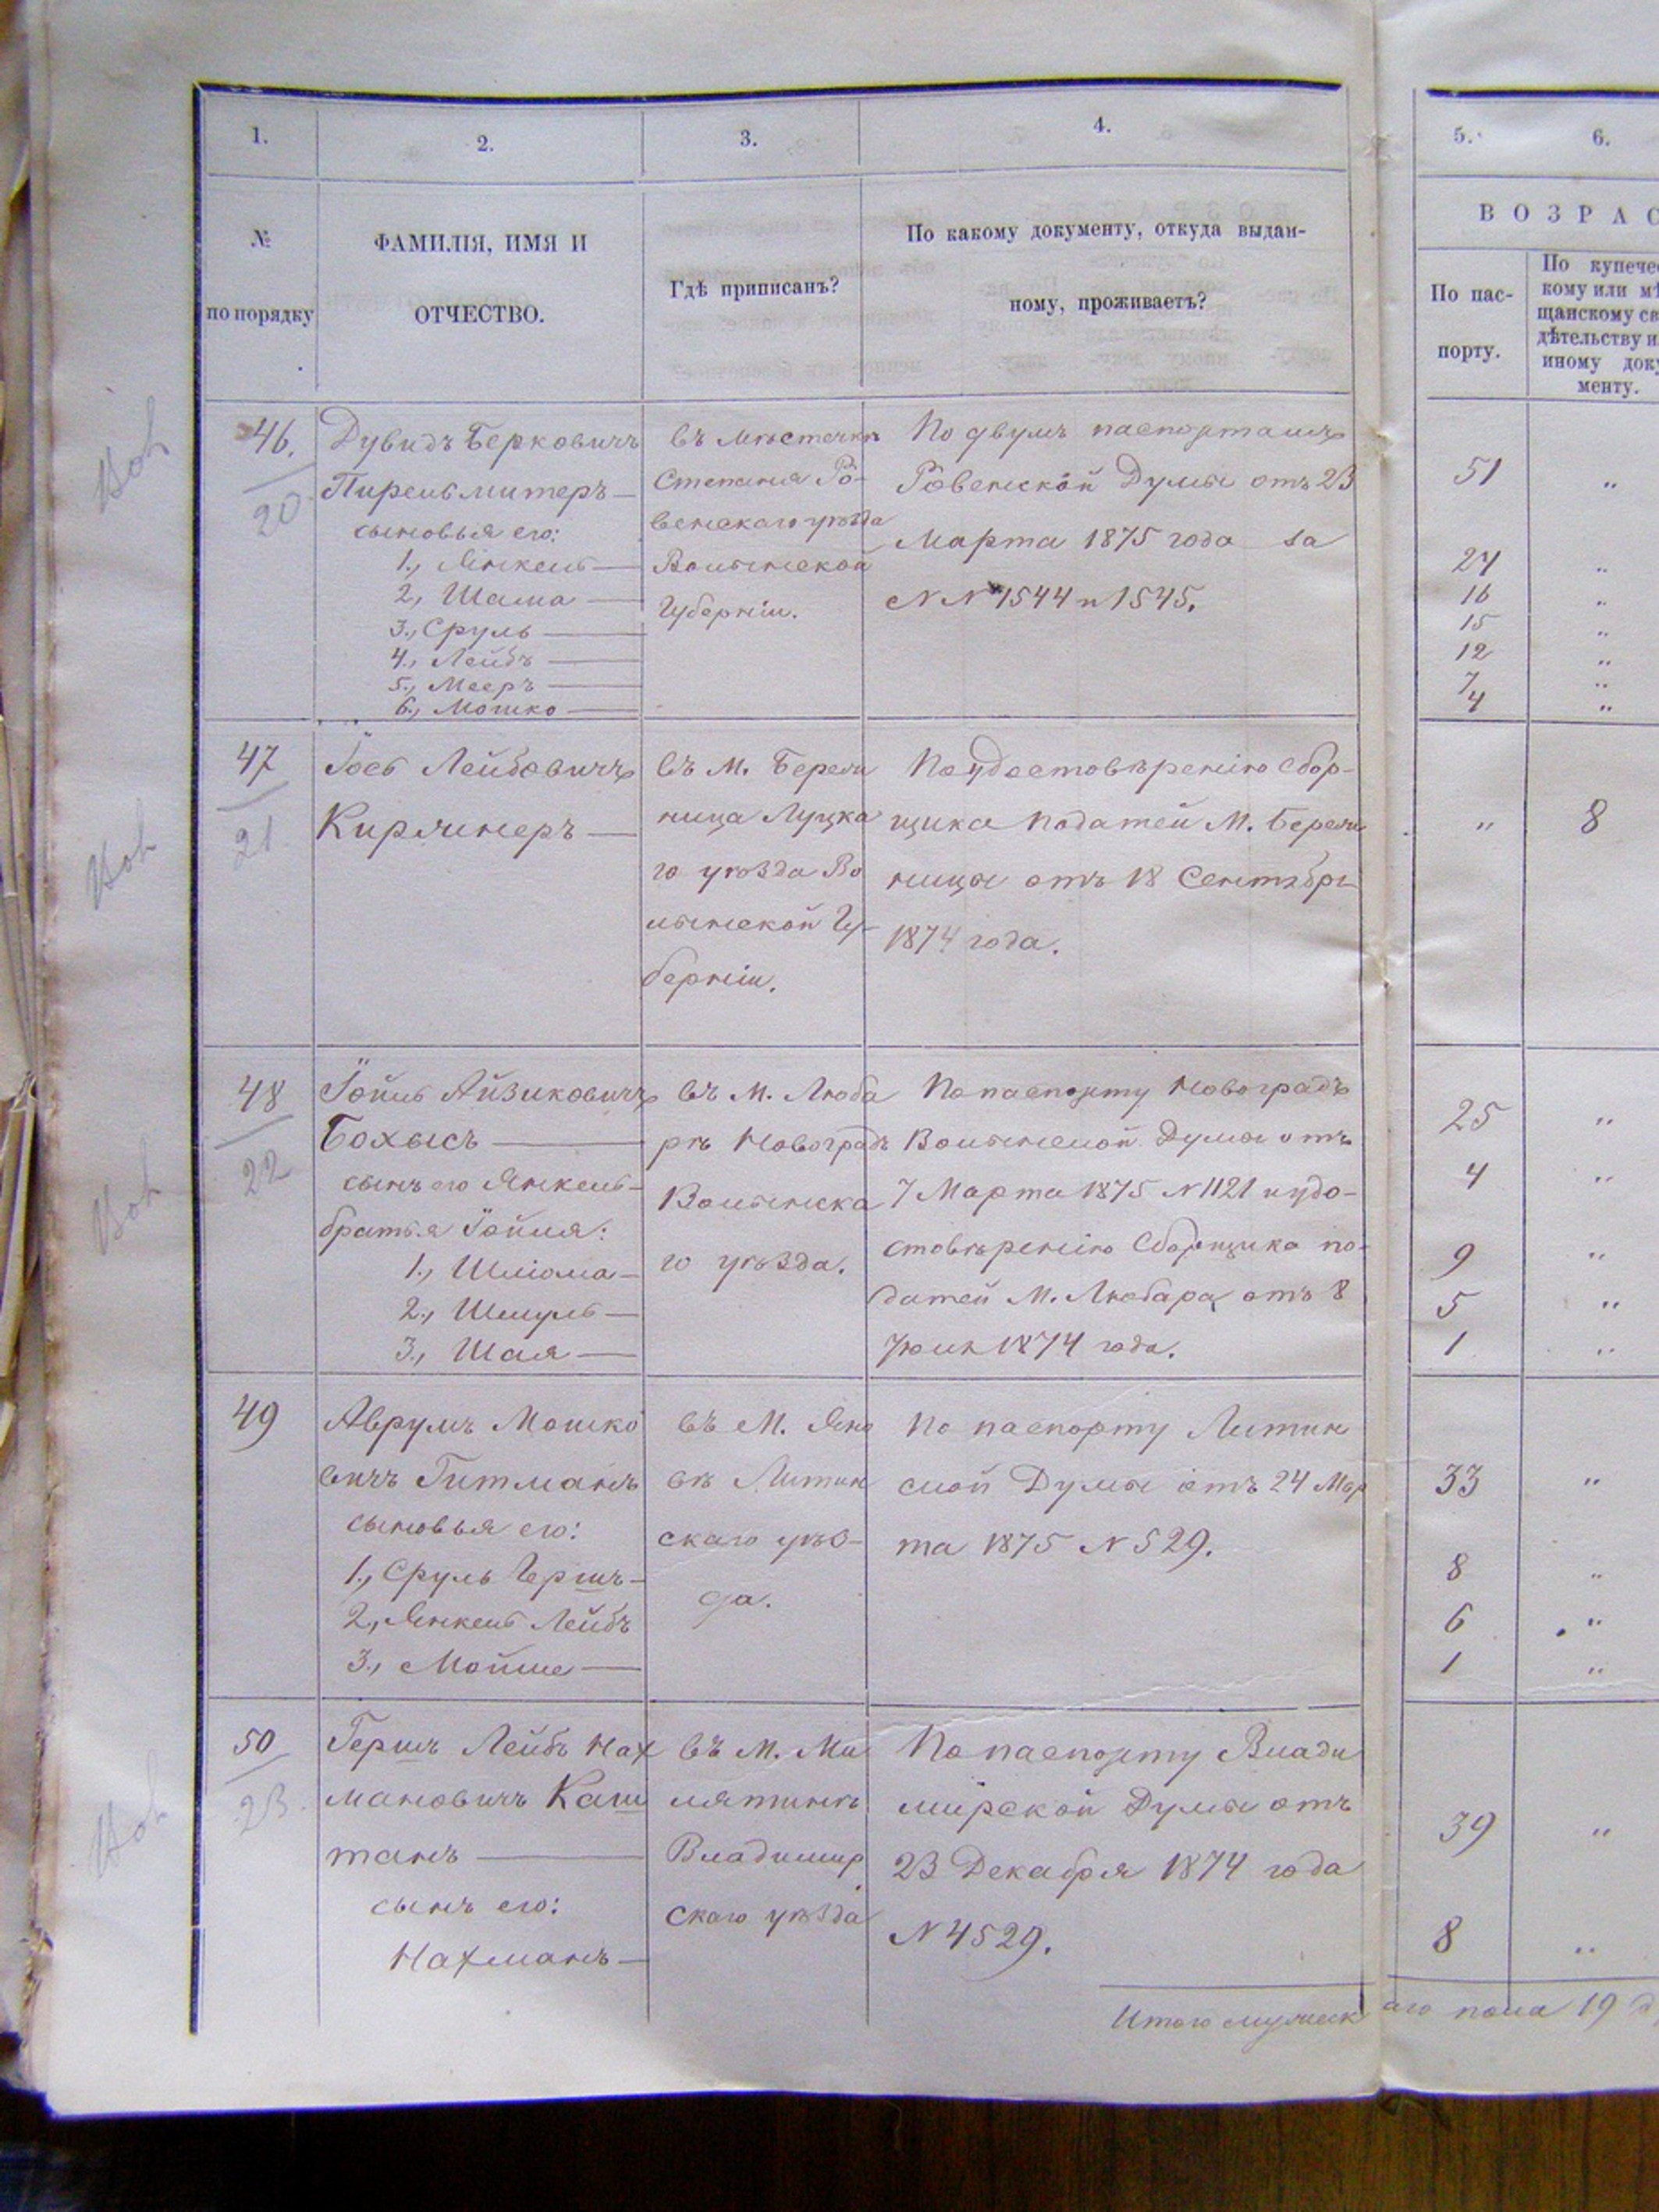 1. 2. 3. 4. 5. 6.
№ по порядку
ФАМИЛІЯ, ИМЯ И
ОТЧЕСТВО.
Гдѣ приписанъ?
По какому документу, откуда выдан-
ному, проживаетъ?
ВОЗРАС
По пас-
порту.
По купечес
кому или мѣ
щанскому св
дѣтельству и
иному доку
менту.
46.
20
Дувидъ Берковичъ
Пиреньмитеръ —
сыновья его:
1., Янкель —
2., Шама —
3., Сруль —
4., Лейбъ —
5., Мееръ —
6., Мошко —
въ мѣстечкѣ
Степаня Ро-
венскаго уѣзда
Волынской
Губерніи.
По двумъ паспортамъ
Ровенской Думы отъ 23
Марта 1875 года за
N N 1544 и 1545.
51 "
24 "
16 "
15 "
12 "
7 "
4 "
47
21
Іосъ Лейбовичъ
Киржнеръ —
въ М. Берез
ница Луцка
го уѣзда Во
лынской Гу-
берніи.
По удостовѣренію Сбор-
щика податей М. Берез
ницы отъ 18 Сентября
1874 года.
" 8
48
22
Іойль Айзиковичъ
Бохысъ —
сынъ его Янкель -
братья Іойля:
1., Шліома —
2., Шмуль —
3., Шая —
въ М. Люба
рѣ Новоградъ
Волынска
го уѣзда.
По паспорту Новоградъ
Волынской Думы отъ
7 Марта 1875 N 1121 и удо-
стовѣренію Сборщика по-
датей М. Любара отъ 8
1874 года.
25 "
4 "
9 "
5 "
1 "
49
Аврумъ Мошко
вичъ Гитманъ
сыновья его:
1., Сруль Гершъ -
2., Янкель Лейбъ
3., Мойше —
въ М. Яно
вѣ Литин
скаго уѣз-
да.
По паспорту Литин
ской Думы отъ 24 Мар
та 1875 N 529.
33 "
8 "
6 "
1 "
50
23
Гершъ Лейбъ Нах
мановичъ Каш
танъ —
сынъ его:
Нахманъ —
въ М. Ми
лятинѣ
Владимир
скаго уѣзда
По паспорту Влади
мірской Думы отъ
23 Декабря 1874 года
N 4529.
39 "
8 "
Итого мужеск аго пола 19 д